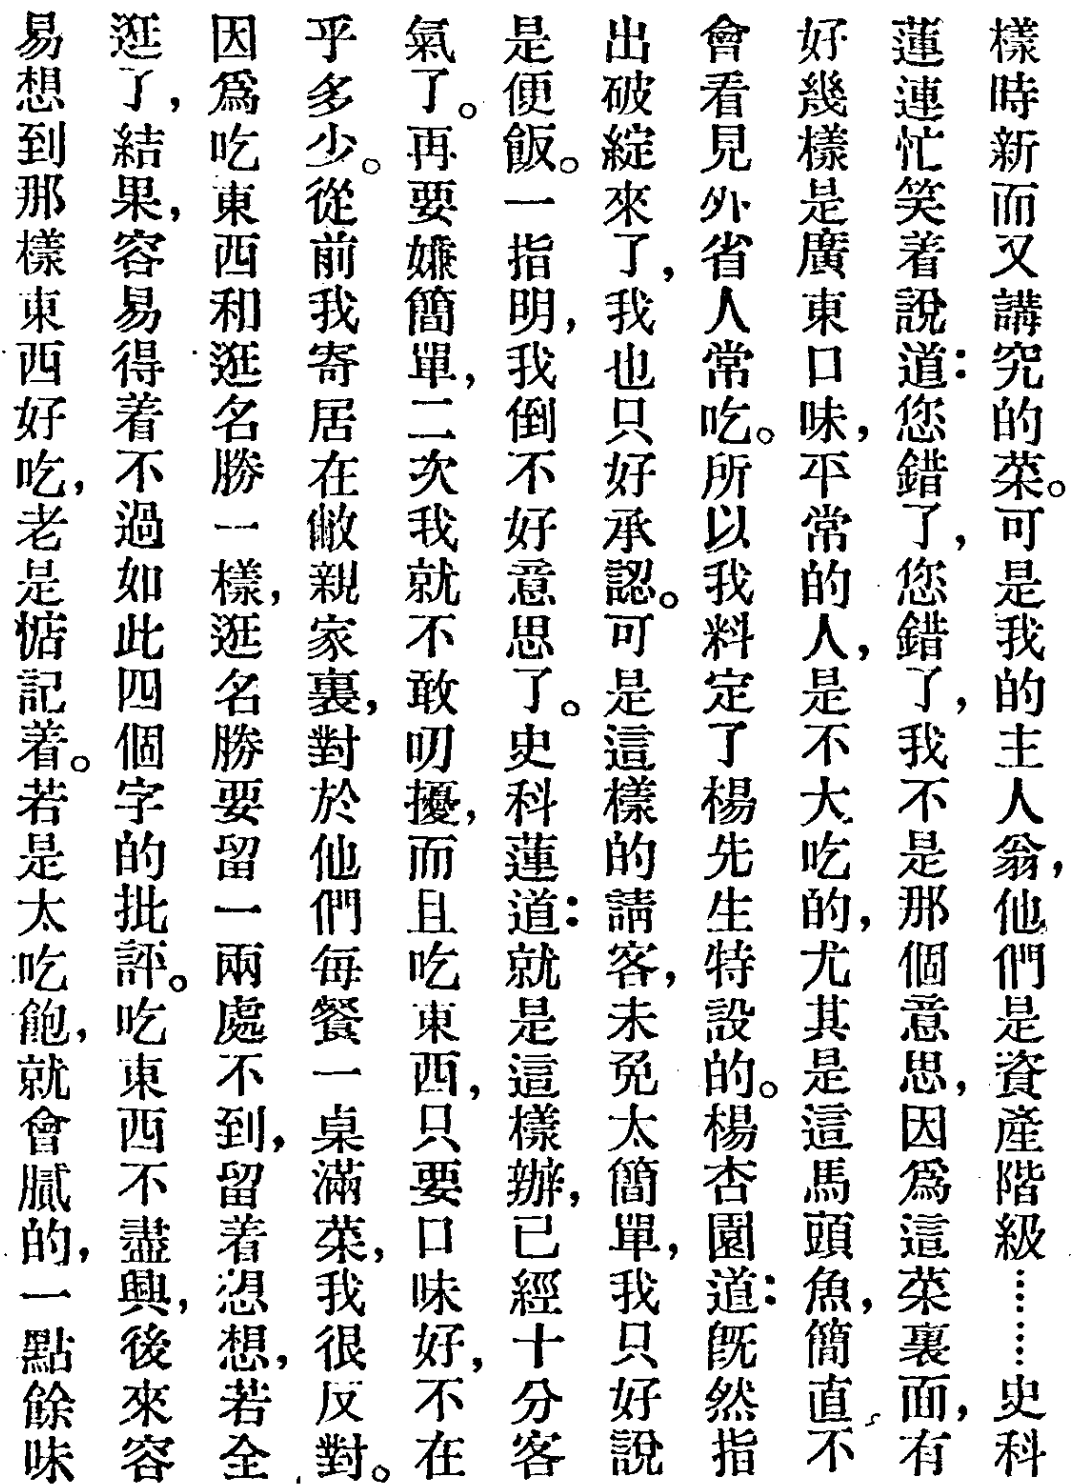 樣時新而又講究的菜。可是我的主人翁，他們是資產階級……史科
蓮連忙笑着說道：您錯了，您錯了，我不是那個意思，因爲這菜裏面，有
好幾樣是廣東口味，平常的人，是不大吃的，尤其是這馬頭魚，簡直不
會看見外省人常吃。所以我料定了楊先生特設的。楊杏園道：既然指
出破綻來了，我也只好承認。可是這樣的請客，未免太簡單，我只好說
是便飯。一指明，我倒不好意思了。史科蓮道：就是這樣辦，已經十分客
氣了。再要嫌簡單，二次我就不敢叨擾，而且吃東西，只要口味好，不在
乎多少。從前我寄居在敝親家裏，對於他們每餐一桌滿菜，我很反對。
因爲吃東西和逛名勝一樣，逛名勝要留一兩處不到，留着想想，若全
逛了，結果，容易得着不過如此四個字的批評。吃東西不盡興，後來容
易想到那樣東西好吃，老是惦記着。若是太吃飽，就會膩的，一點餘味